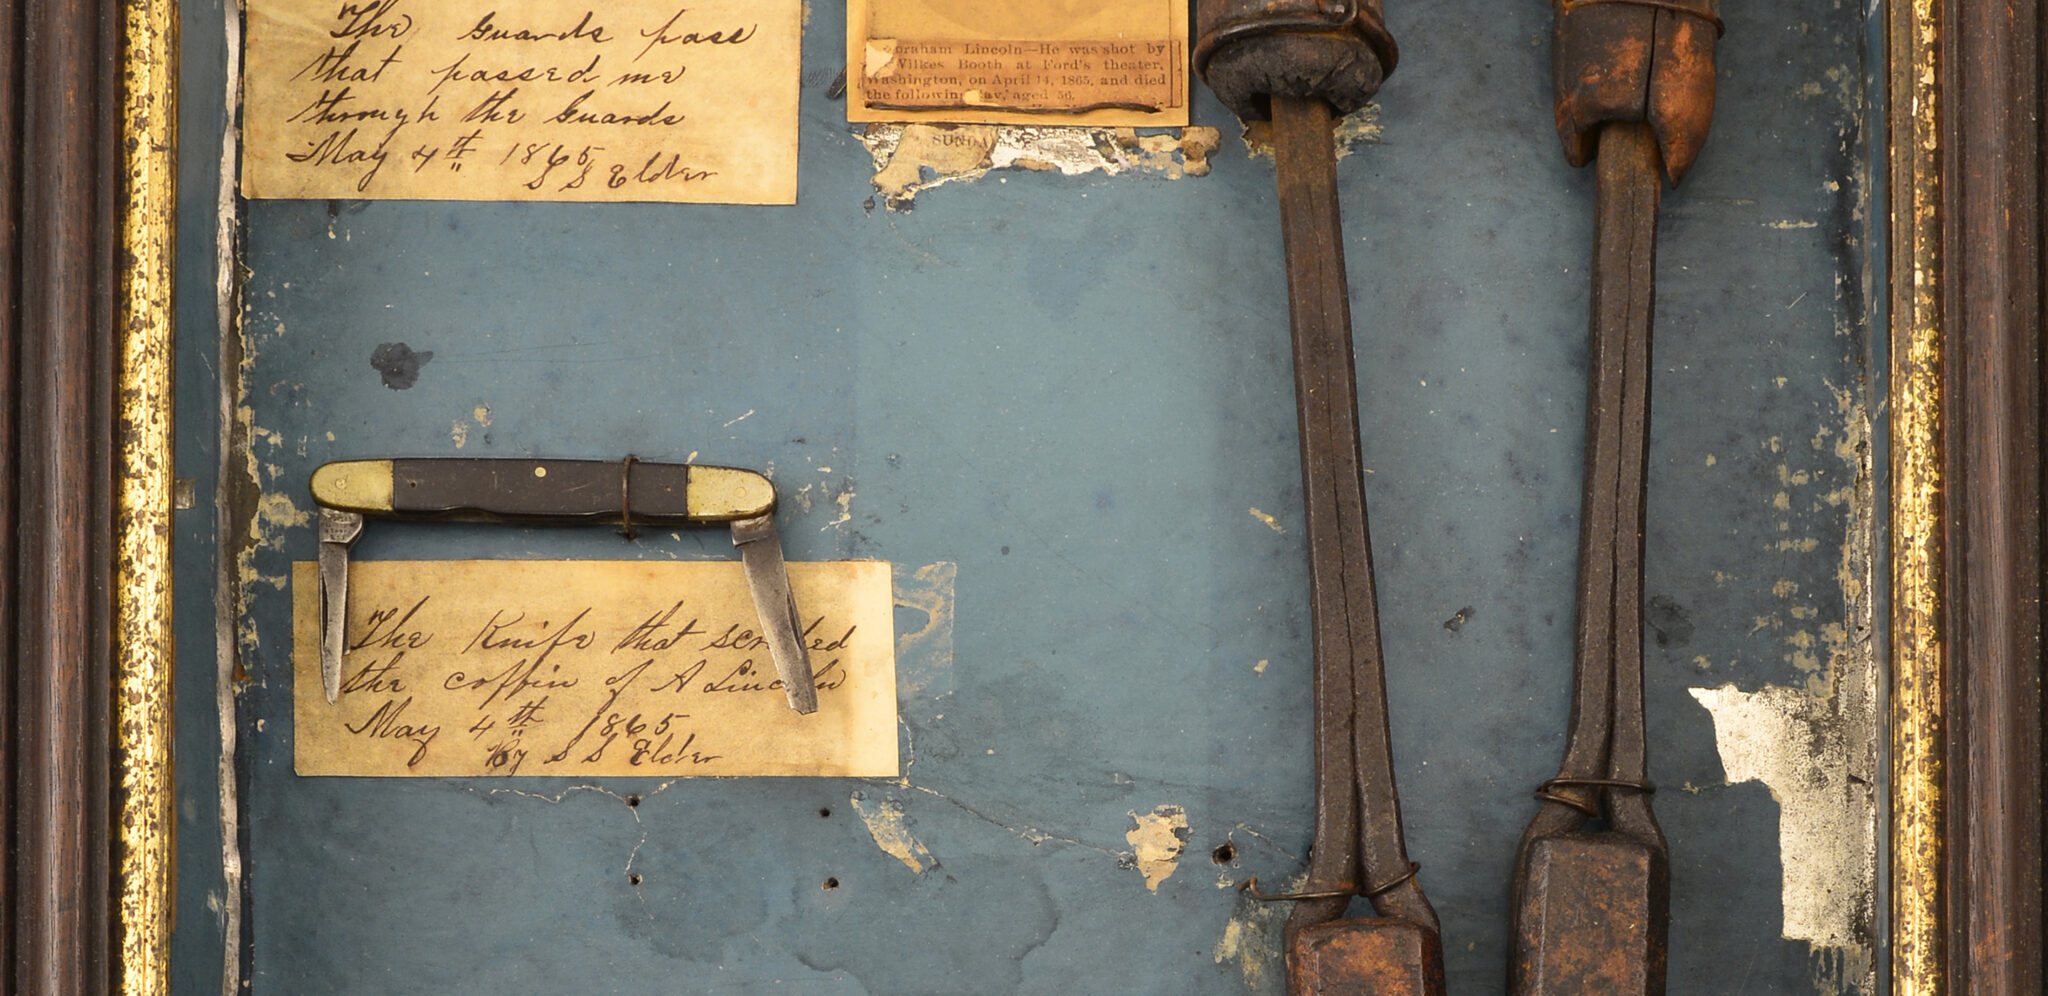 The Guards pass
that passed me
through the Guards
May 4th 1865
S S Elder
Abraham Lincoln—He was shot by
Wilkes Booth at Ford's theater,
Washington, on April 14, 1865, and died
the following day, aged 56.
SUNDA
The Knife that scraped
the coffin of A Lincoln
May 4th 1865
By S S Elder